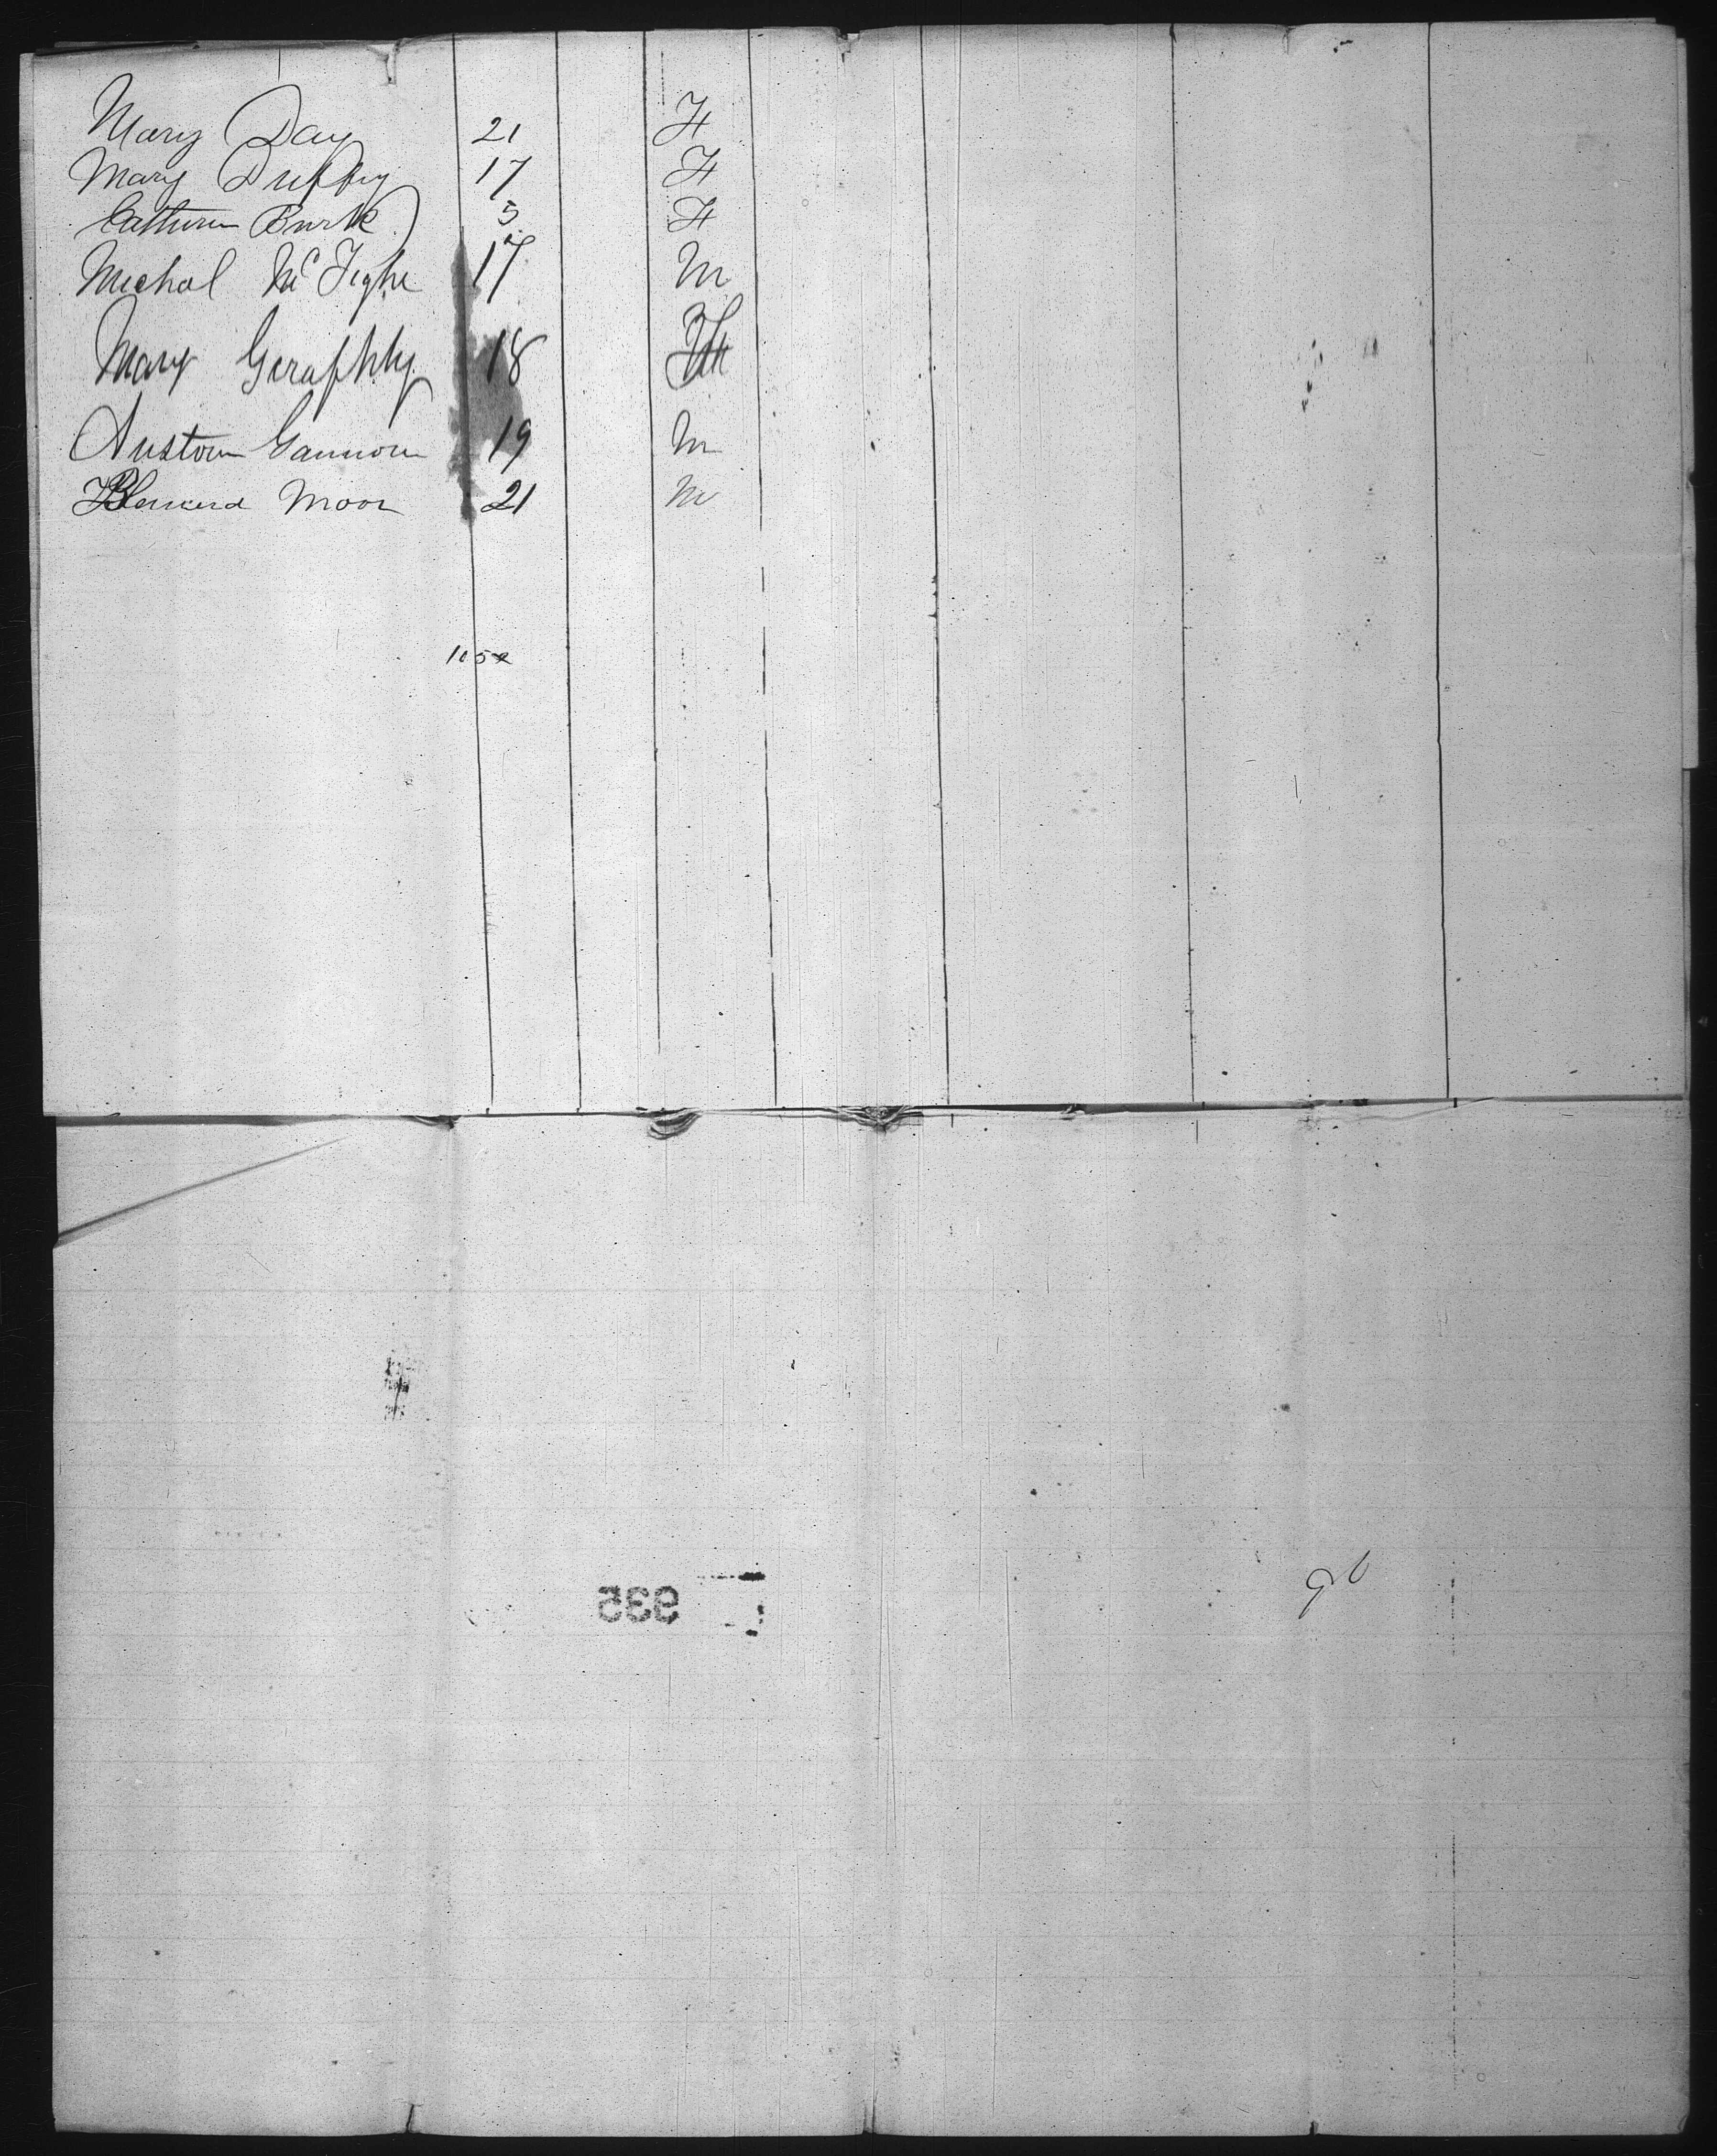 Mary Day 21 F
Mary Duffy 17 F
Cathurin Burke 3 F
Michal McTighe 17 M
Mary Geraphty 18 F
Auston Gannon 19 M
Bernerd Moor 21 M
1052
935
96